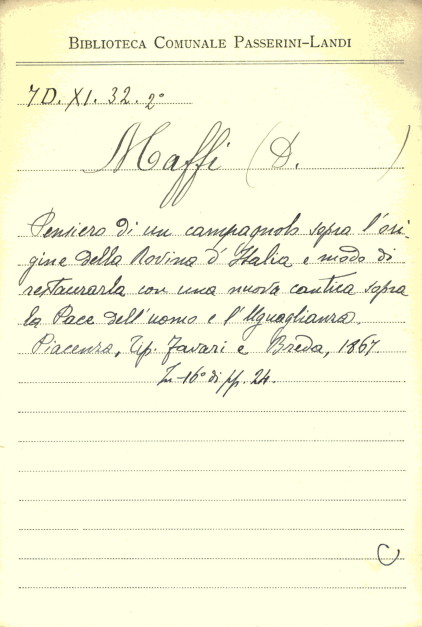 BIBLIOTECA COMUNALE PASSERINI-LANDI
7D. XI. 32. 2º
Maffi (D. )
Pensiero di un campagnolo sopra l'ori-
gine della Rovina d'Italia e modo di
restaurarla con una nuova cantica sopra
la Pace dell'uomo e l'Uguaglianza.
Piacenza, Tip. Favari e Breda, 1867.
In-16º di pp. 24.
C